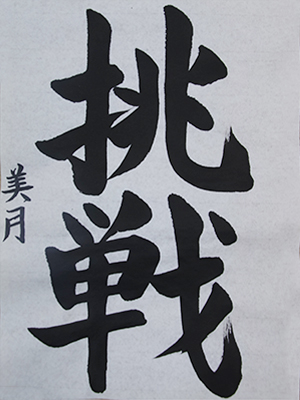 挑戦
美月